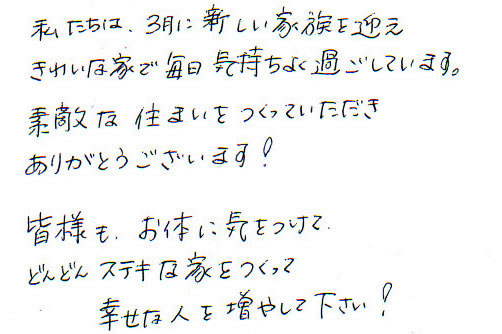 私たちは、3月に新しい家族を迎え
きれいな家で毎日気持ちよく過ごしています。
素敵な住まいをつくっていただき
ありがとうございます!
皆様も、お体に気をつけて、
どんどんステキな家をつくって
幸せな人を増やして下さい!